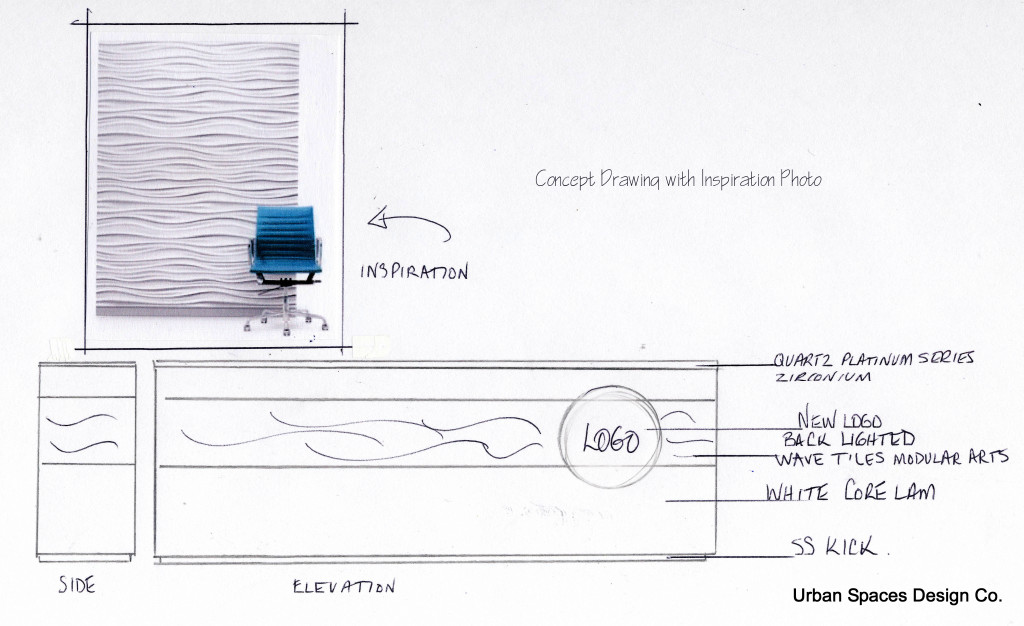 Concept Drawing with Inspiration Photo
INSPIRATION
QUARTZ PLATINUM SERIES
ZIRCONIUM
NEW LOGO
BACK LIGHTED
WAVE TILES MODULAR ARTS
LOGO
WHITE CORE LAM
SS KICK.
SIDE
ELEVATION
Urban Spaces Design Co.